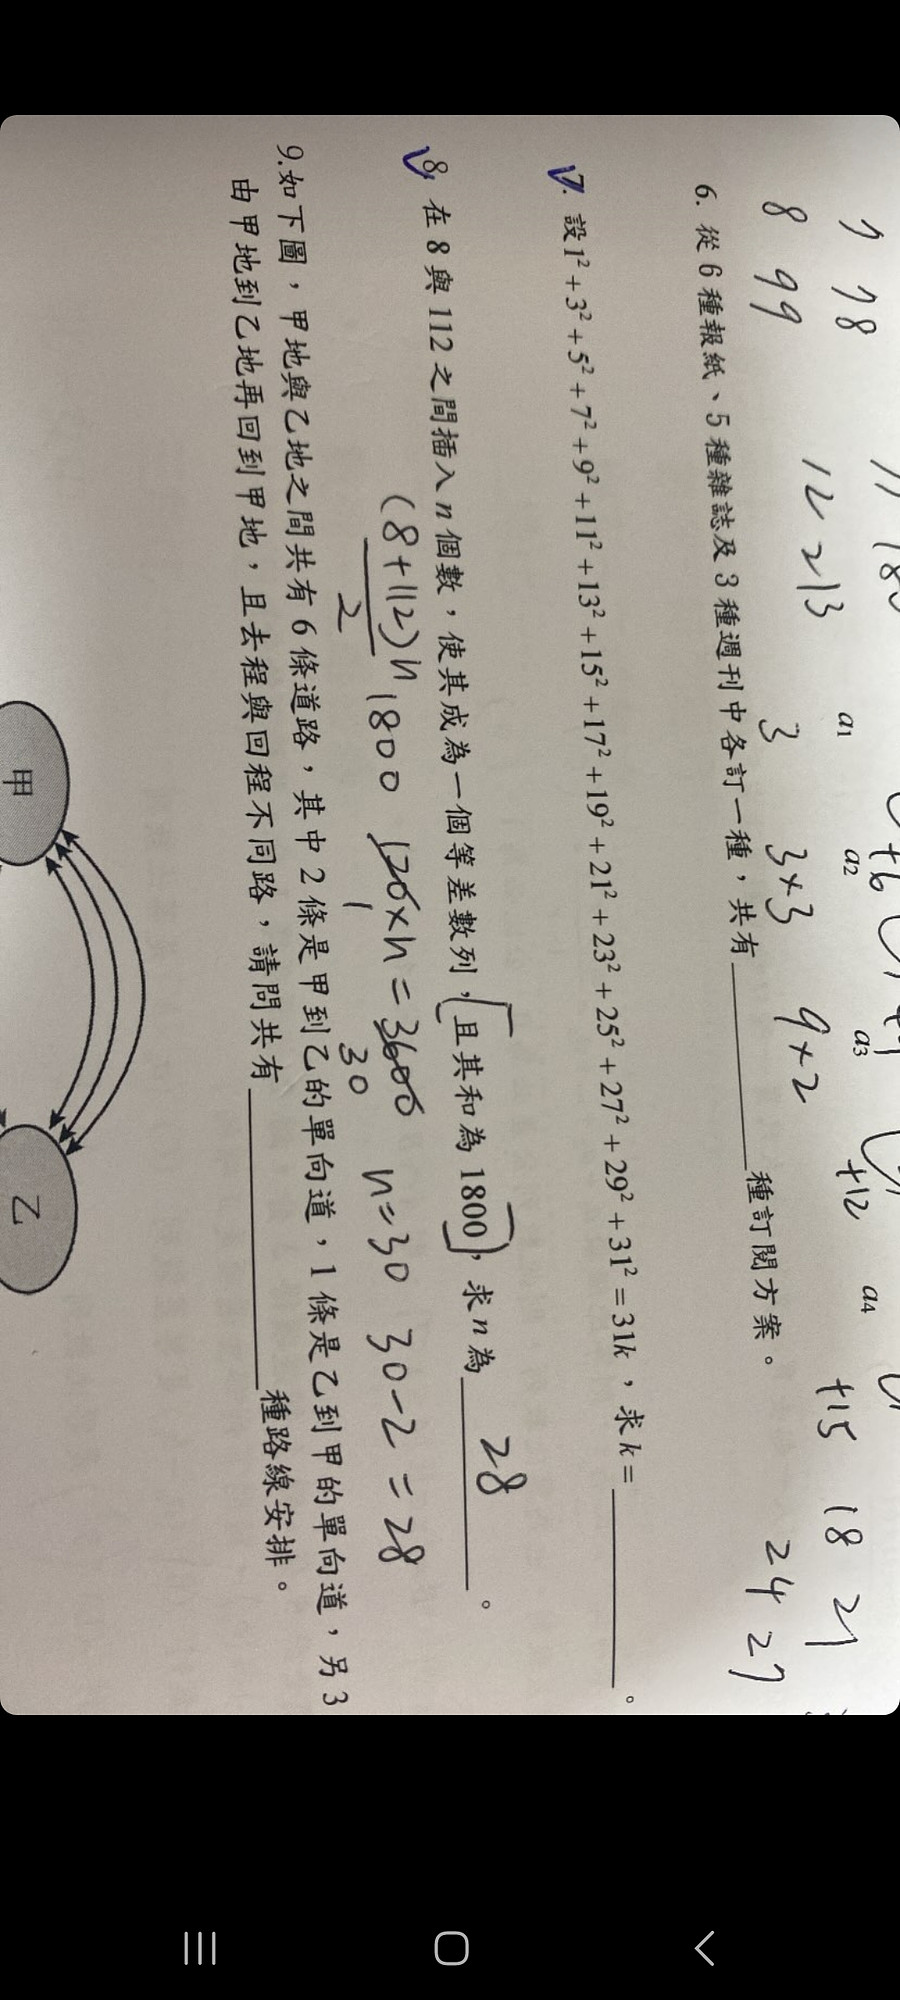 7 78
8 99
12 213
a₁ a₂ a₃ a₄
+6
+12 +15 18 21
24 27
3 3×3 9×2
6. 從6種報紙、5種雜誌及3種週刊中各訂一種，共有__________種訂閱方案。
7. 設1²+3²+5²+7²+9²+11²+13²+15²+17²+19²+21²+23²+25²+27²+29²+31²=31k，求k=__________。
8. 在8與112之間插入n個數，使其成為一個等差數列，且其和為1800，求n為 28 。
(8+112)n 1800 120×n=3600 n=30 30-2=28
2 1 30
9.如下圖，甲地與乙地之間共有6條道路，其中2條是甲到乙的單向道，1條是乙到甲的單向道，另3
由甲地到乙地再回到甲地，且去程與回程不同路，請問共有__________種路線安排。
甲 乙